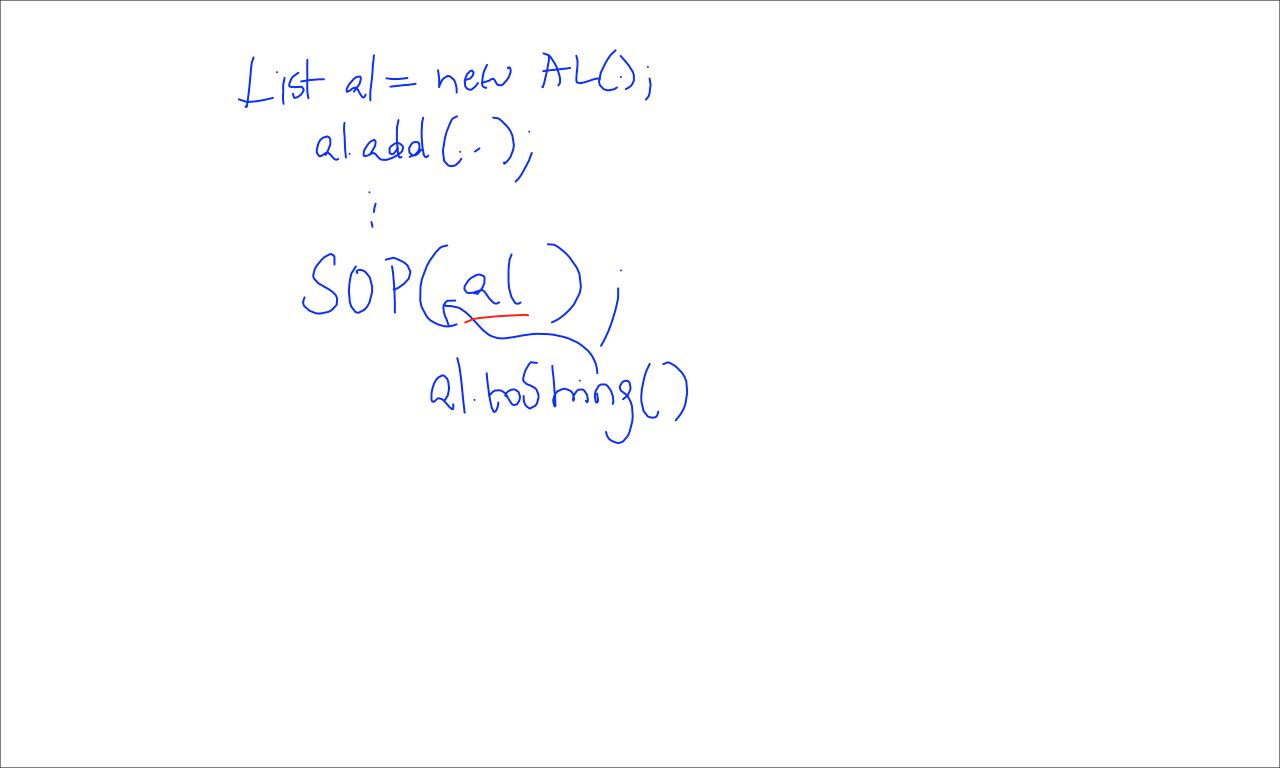 List al = new AL();
al.add(..);
:
SOP(al);
al.toString()